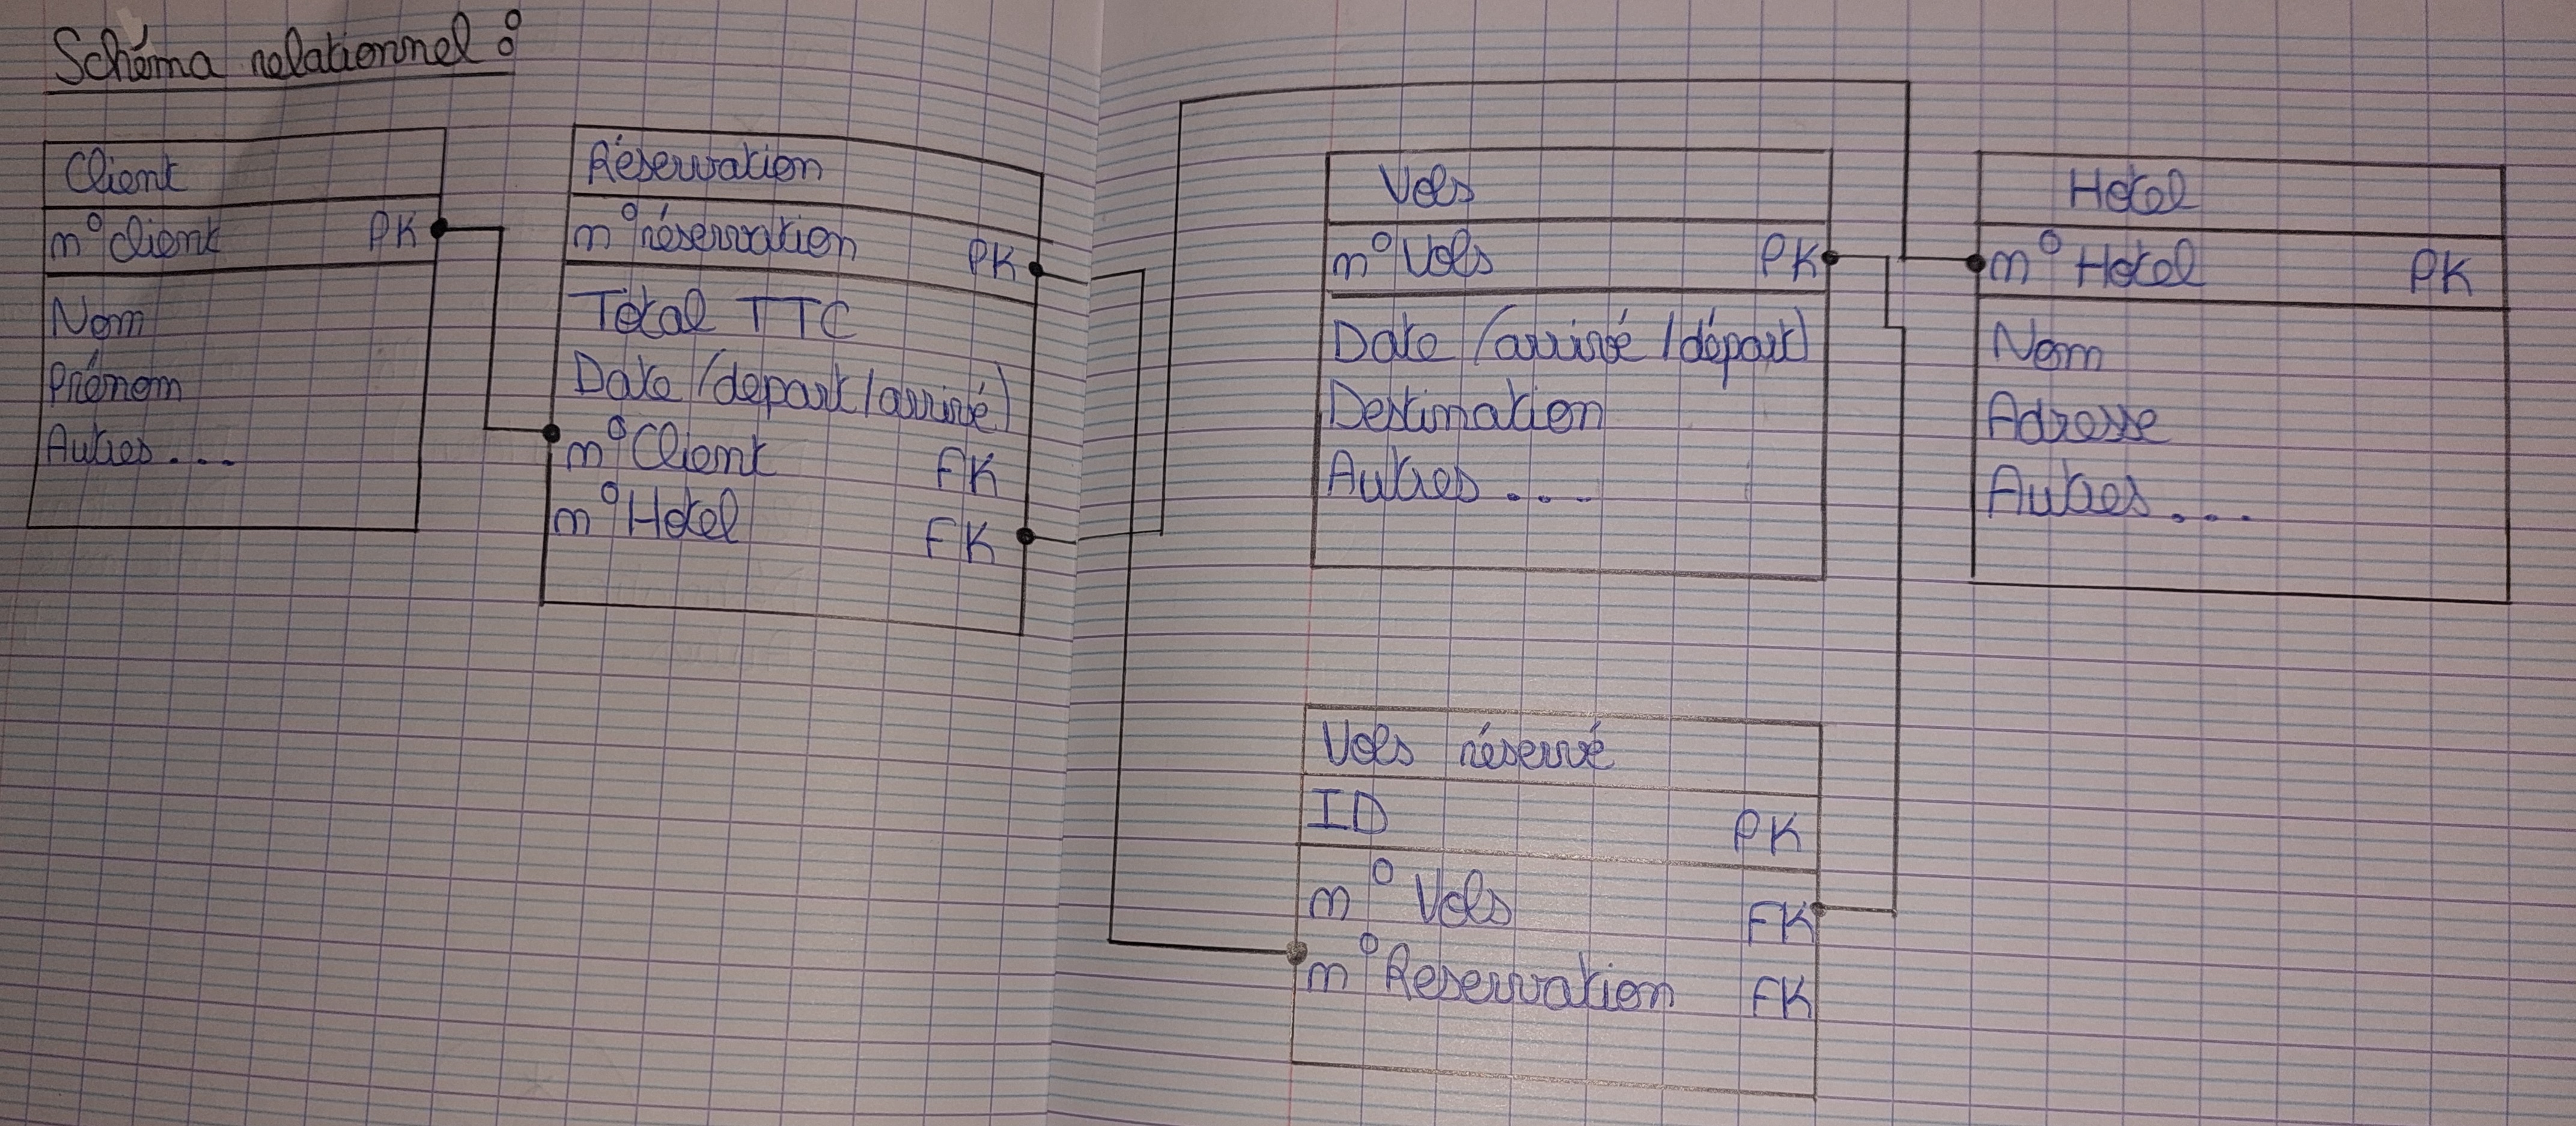 Schéma relationnel :
Client
n° client PK
Nom
Prénom
Autres...
Réservation
n° réservation PK
Total TTC
Date (depart/arrivé)
n° Client FK
n° Hotel FK
Vols
n° Vols PK
Date (arrivé/départ)
Destination
Autres....
Hotel
n° Hotel PK
Nom
Adresse
Autres...
Vols réservé
ID PK
n° Vols FK
n° Reservation FK